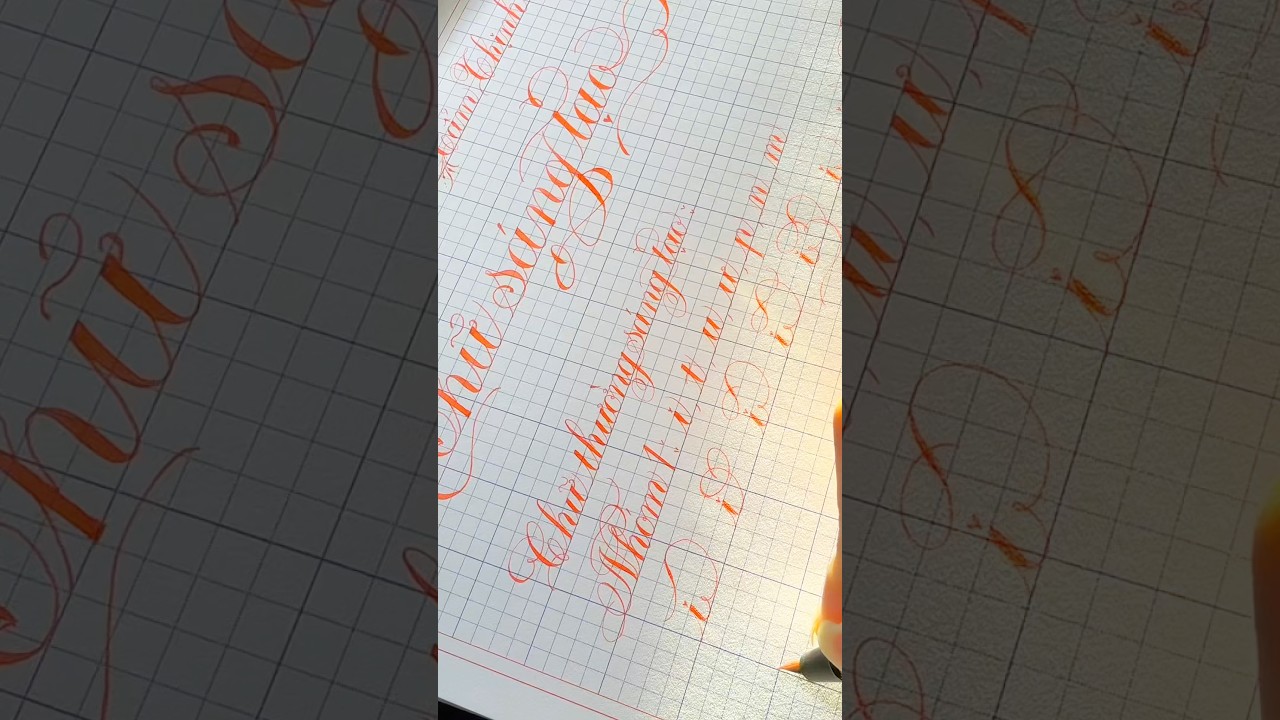 Cẩm Thịnh
Chữ sáng tạo
Chữ thường sáng tạo:
Nhóm 1: i, t, u, ư, p, n, m
i i i i i i